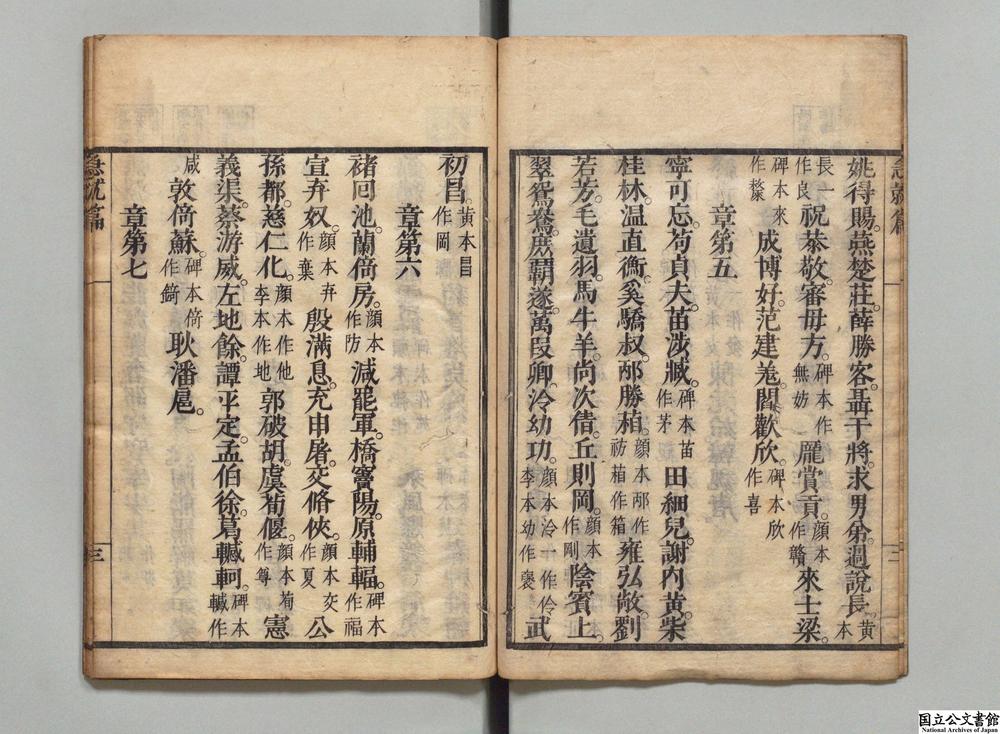 姚得賜。燕楚莊。薛勝客。聶干將。求男弟。過說長。黃本
長一作良祝恭敬。審毋方。碑本作無妨龐賞贡。顏本作贛來士梁。
碑本來作㯤成博好。范建羌。閻歡欣。碑本欣作喜
章第五
寧可忘。苟貞夫。苗涉臧。碑本苗作茅田細兒。謝內黃。柴
桂林。溫直衡。奚驕叔。邴勝箱。顏本邴作祊葙作箱雍弘敞。劉
若芳。毛遺羽。馬牛羊。尚次倩。丘則岡。顏本作剛陰賓上。
翠鴛鴦。庶霸遂。萬段卿。泠幼功。顏本泠一作伶李本幼作褒武
初昌。黃本昌作岡
章第六
褚回池。蘭倚房。顏本作防減罷軍。橋竇陽。原輔輻。碑本作福
宣弃奴。顏本弃作棄殷滿息。充申屠。交脩俠。顏本交作夏公
孫都。慈仁化。顏本作他李本作地郭破胡。虞荀偃。顏本荀作尊憲
義渠。蔡游威。左地餘。譚平定。孟伯徐。葛轗軻。碑本轗作
咸敦倚蘇。碑本倚作錡耿潘扈。
章第七
急就篇
三
急就篇
国立公文書館
National Archives of Japan